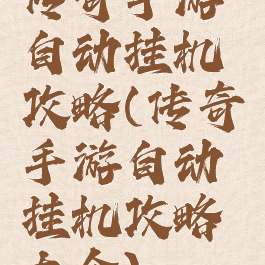 传奇手游
自动挂机
攻略(传奇
手游自动
挂机攻略
大全)